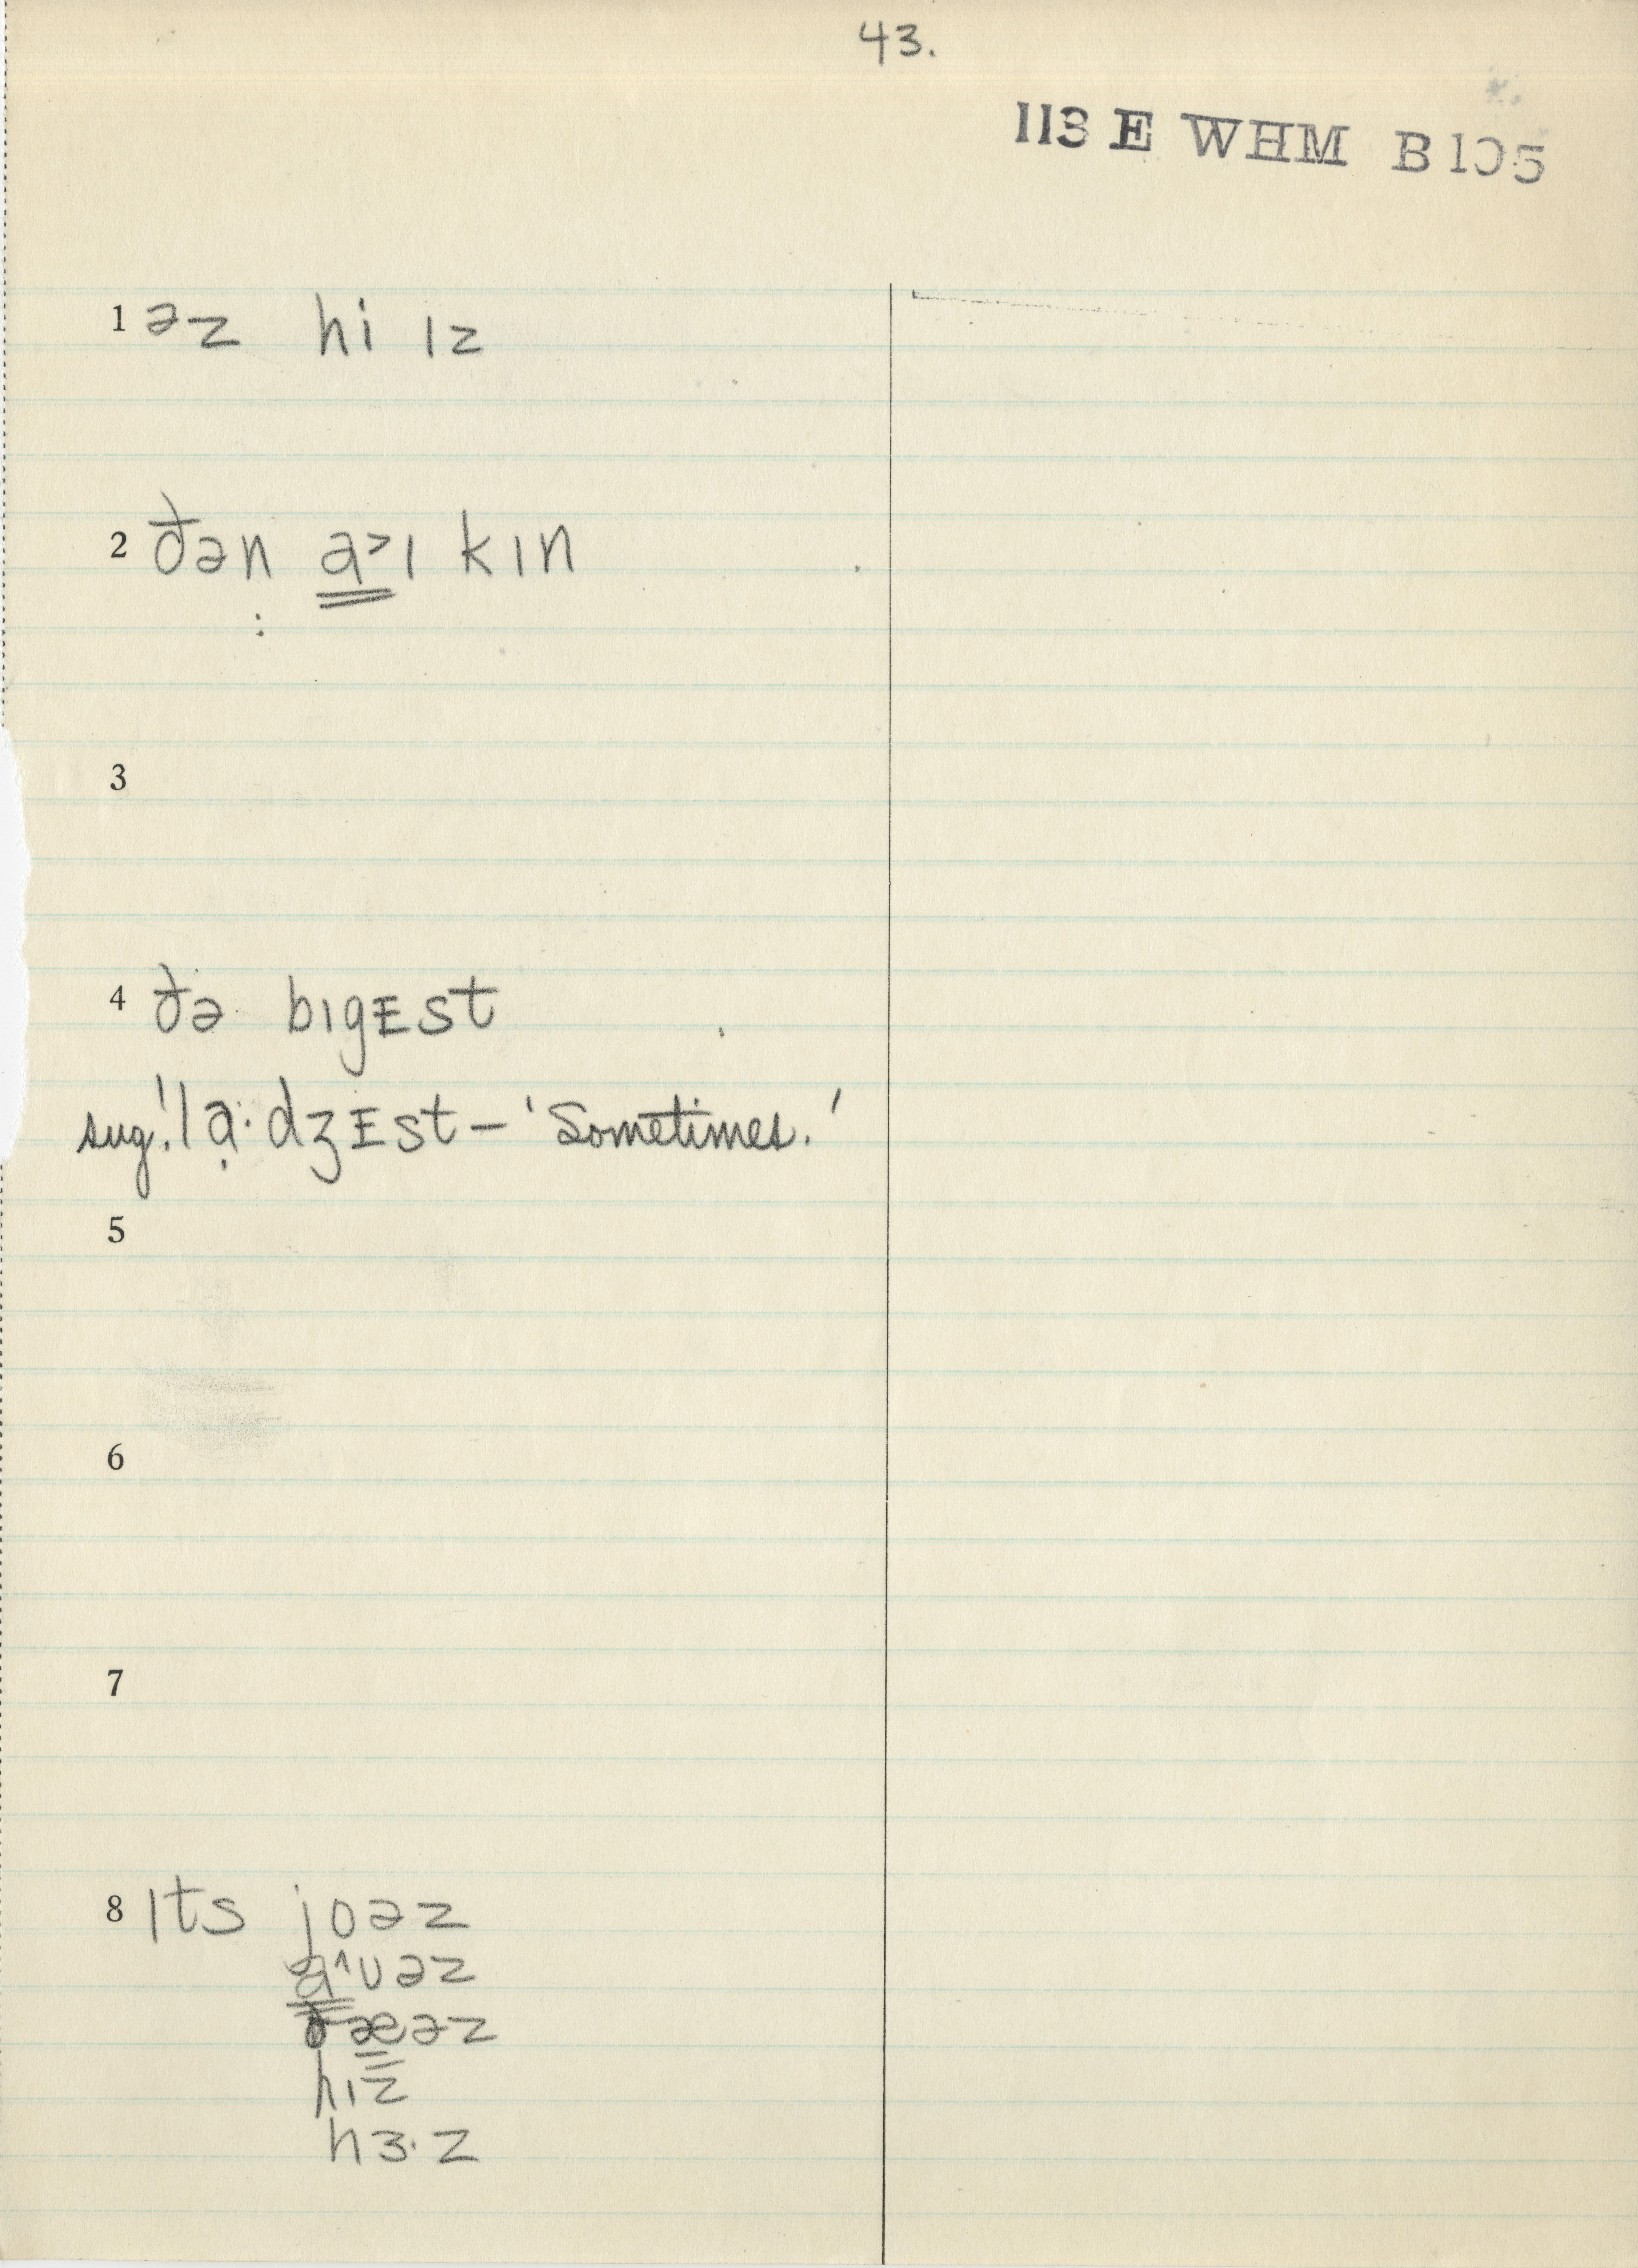 43.
113 E WHM B105
1 əz hi ɪz
2 ðən a˃ɪ kɪn
3
4 ðə bɪgᴇst
sug. ! lạ·dʒᴇst – 'Sometimes.'
5
6
7
8 ɪts joəz
a˄ʊəz
ðæəz
hɪz
hɜ·z